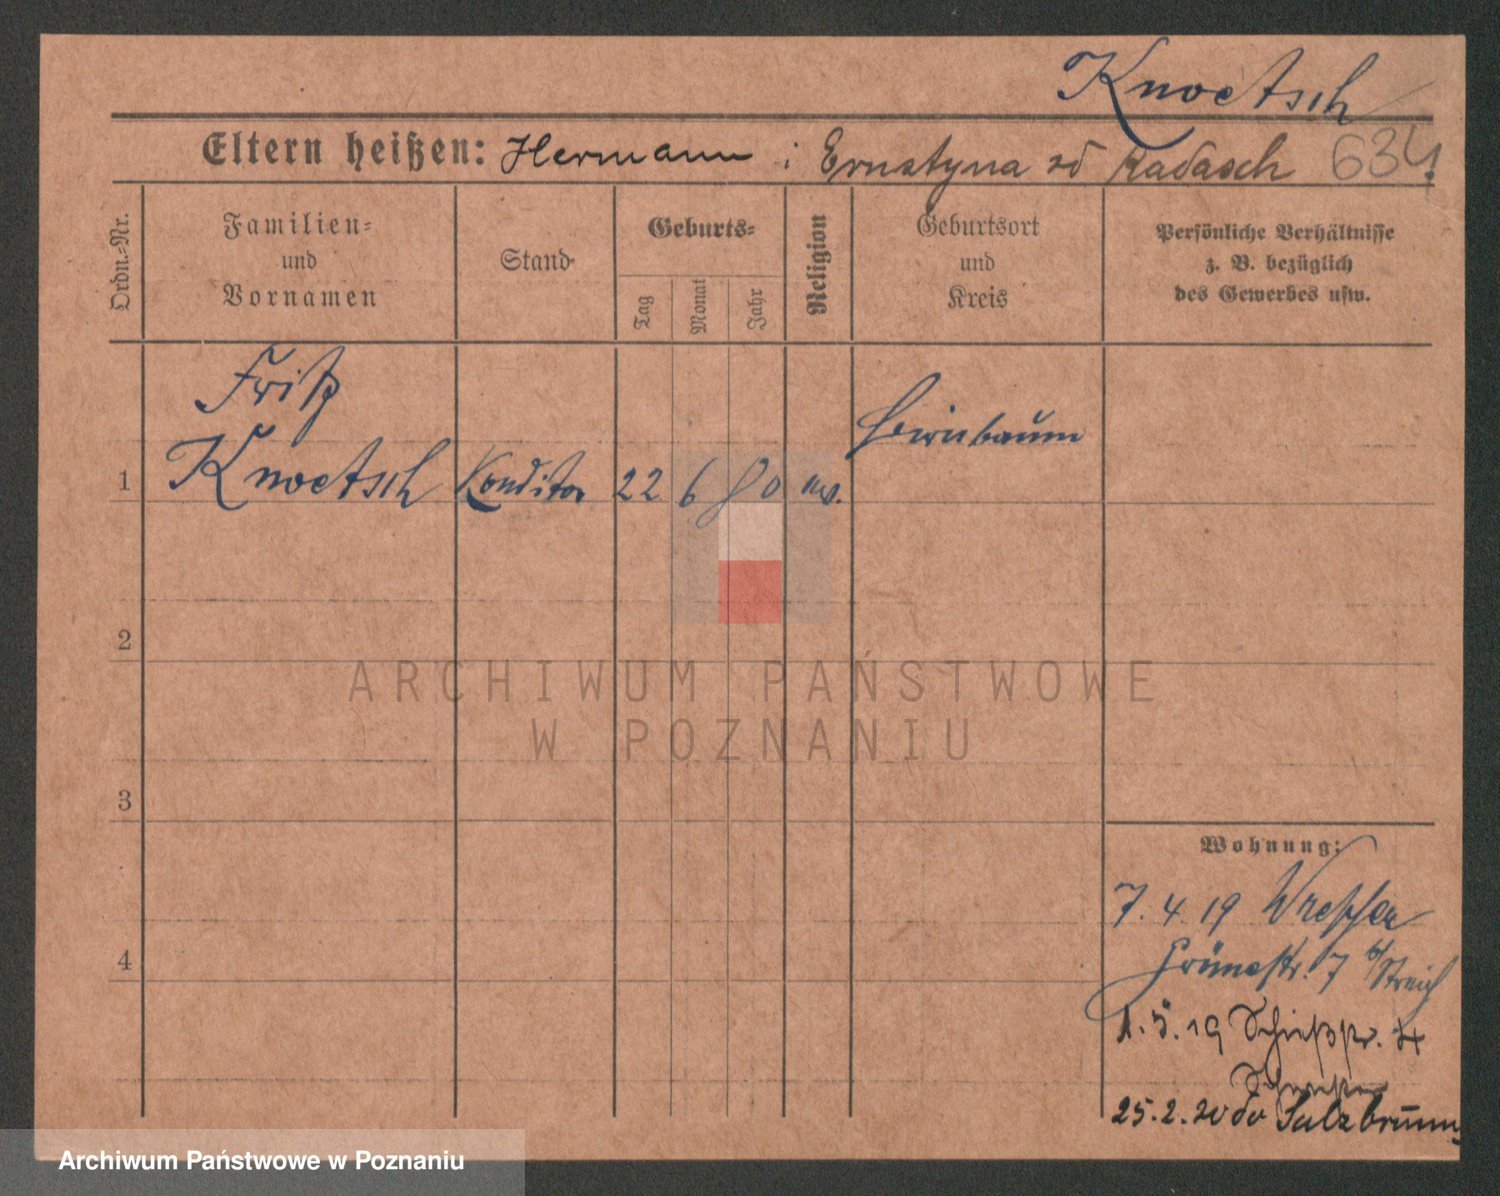 Knoetsch
Eltern heißen: Hermann i Ernstyna zd Kadasch 634
Ordn.-Nr.
Familien-
und
Vornamen
Stand
Geburts-
Tag
Monat
Jahr
Religion
Geburtsort
und
Kreis
Persönliche Verhältnisse
z. B. bezüglich
des Gewerbes usw.
Fritz
Knoetsch
Birnbaum
1
Konditor
22
6
80
2
ARCHIWUM PAŃSTWOWE
W POZNANIU
3
Wohnung:
7.4.19 Wreschen
4
Grünestr. 7 b/Streich
1.5.19 Schießstr. 4
25.2.20 do Salzbrunn
Archiwum Państwowe w Poznaniu